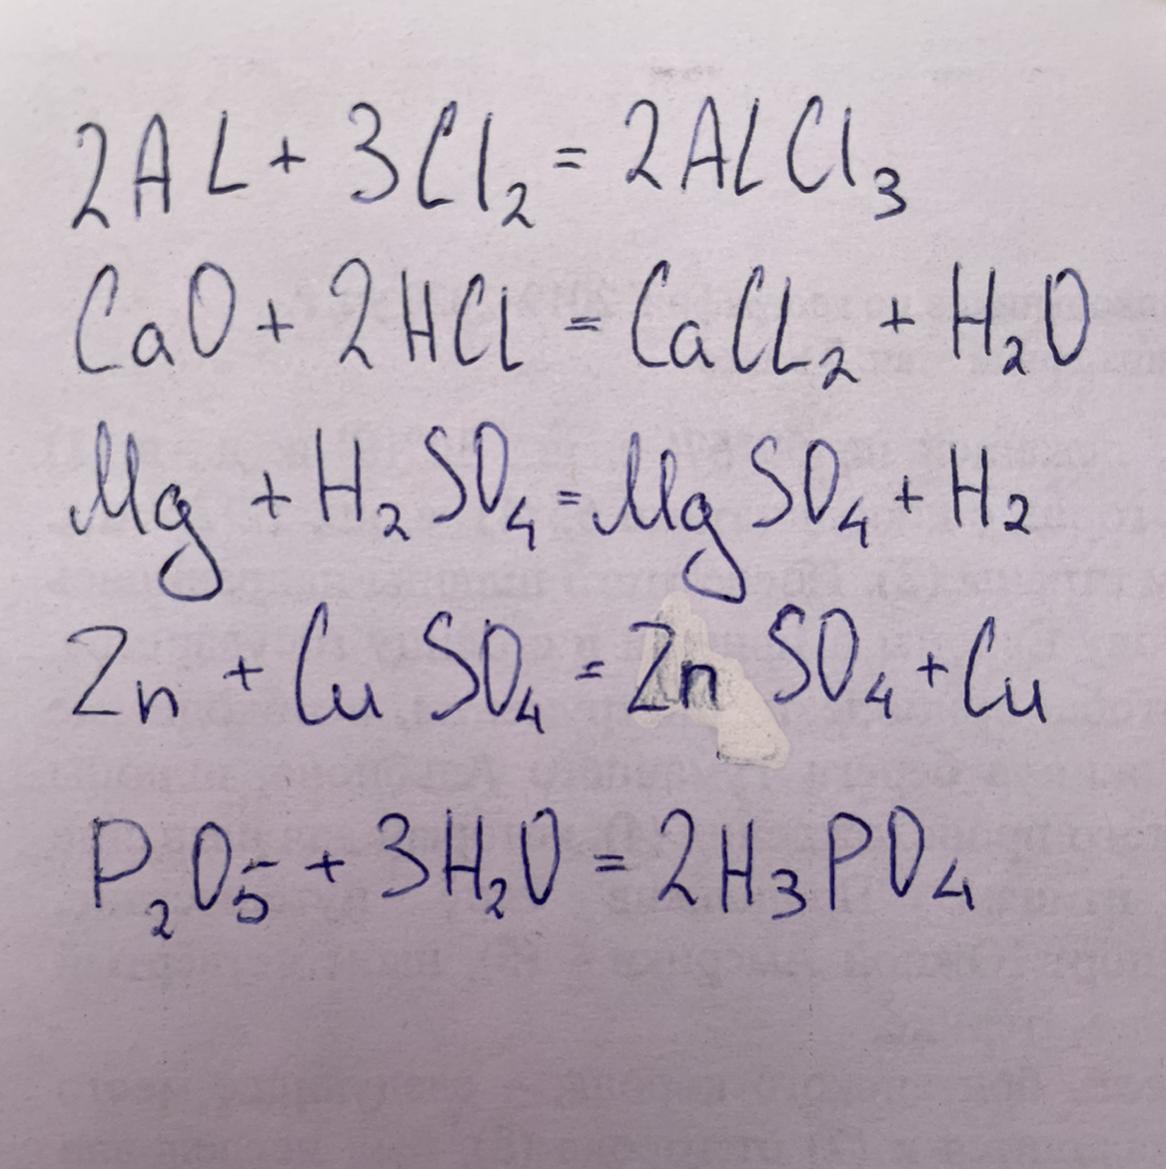 2AL + 3Cl₂ = 2ALCl₃
CaO + 2HCl = CaCL₂ + H₂O
Mg + H₂SO₄ = MgSO₄ + H₂
Zn + CuSO₄ = ZnSO₄ + Cu
P₂O₅ + 3H₂O = 2H₃PO₄